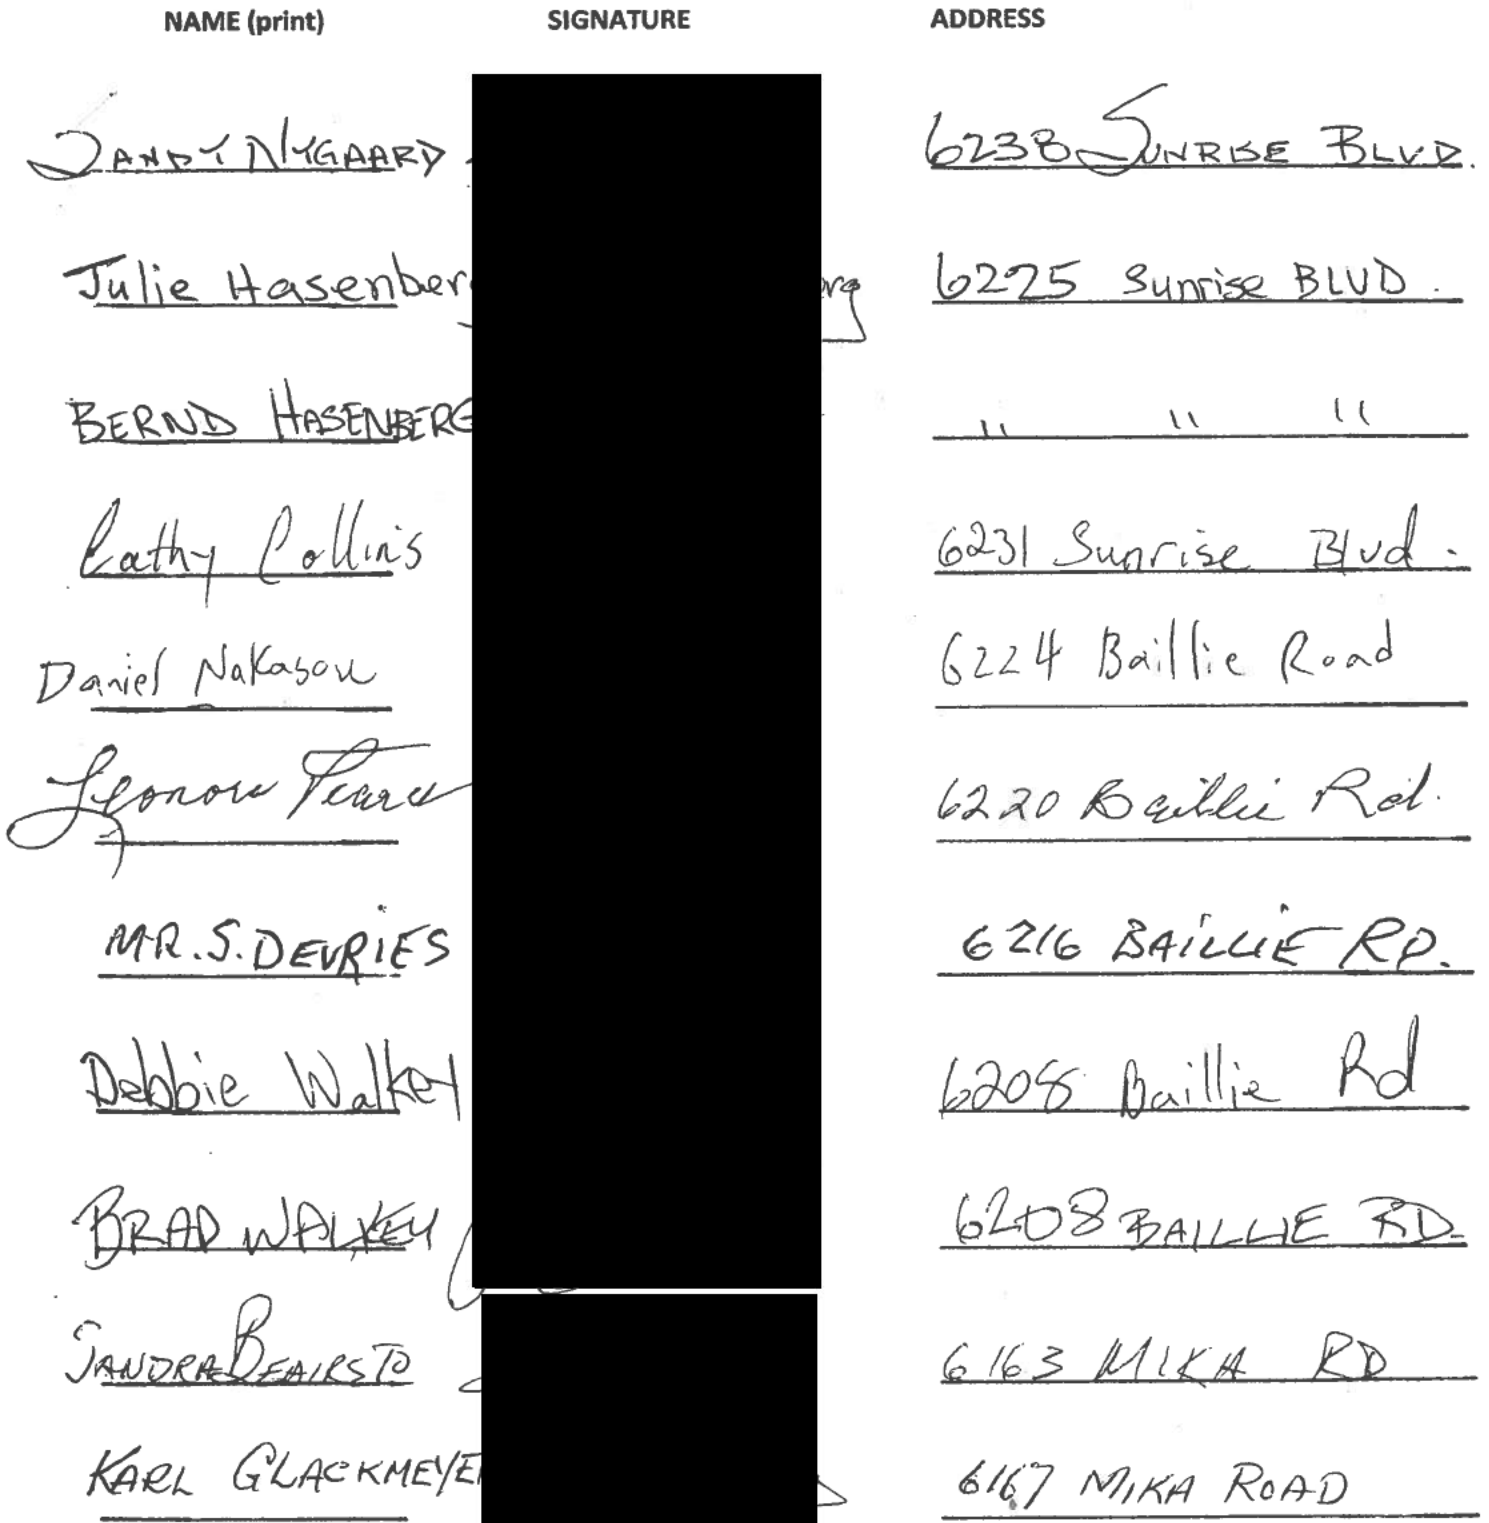 NAME (print) SIGNATURE ADDRESS
SANDY NYGAARD 6238 SUNRISE BLVD.
Julie Hasenberg 6225 Sunrise BLVD.
BERND HASENBERG " " "
Cathy Collins 6231 Sunrise Blvd.
Daniel Nakasou 6224 Baillie Road
Leonore 6220 Baillie Rd.
MR. S. DEVRIES 6216 BAILLIE RD.
Debbie Walkey 6208 Baillie Rd
BRAD WALKEY 6208 BAILLIE RD.
SANDRA BEAIRSTO 6163 MIKA RD
KARL GLACKMEYE 6167 MIKA ROAD